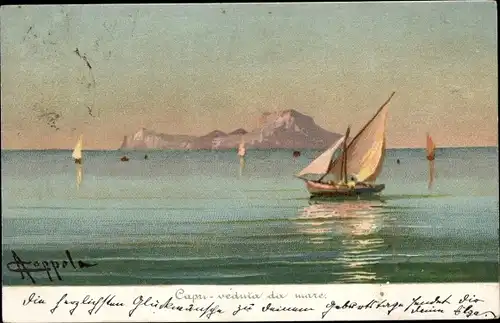 A Coppola
Capri - veduta da mare.
Die herzlichsten Glückwünsche zu deinem Geburtstage sendet dir
deine Elza.